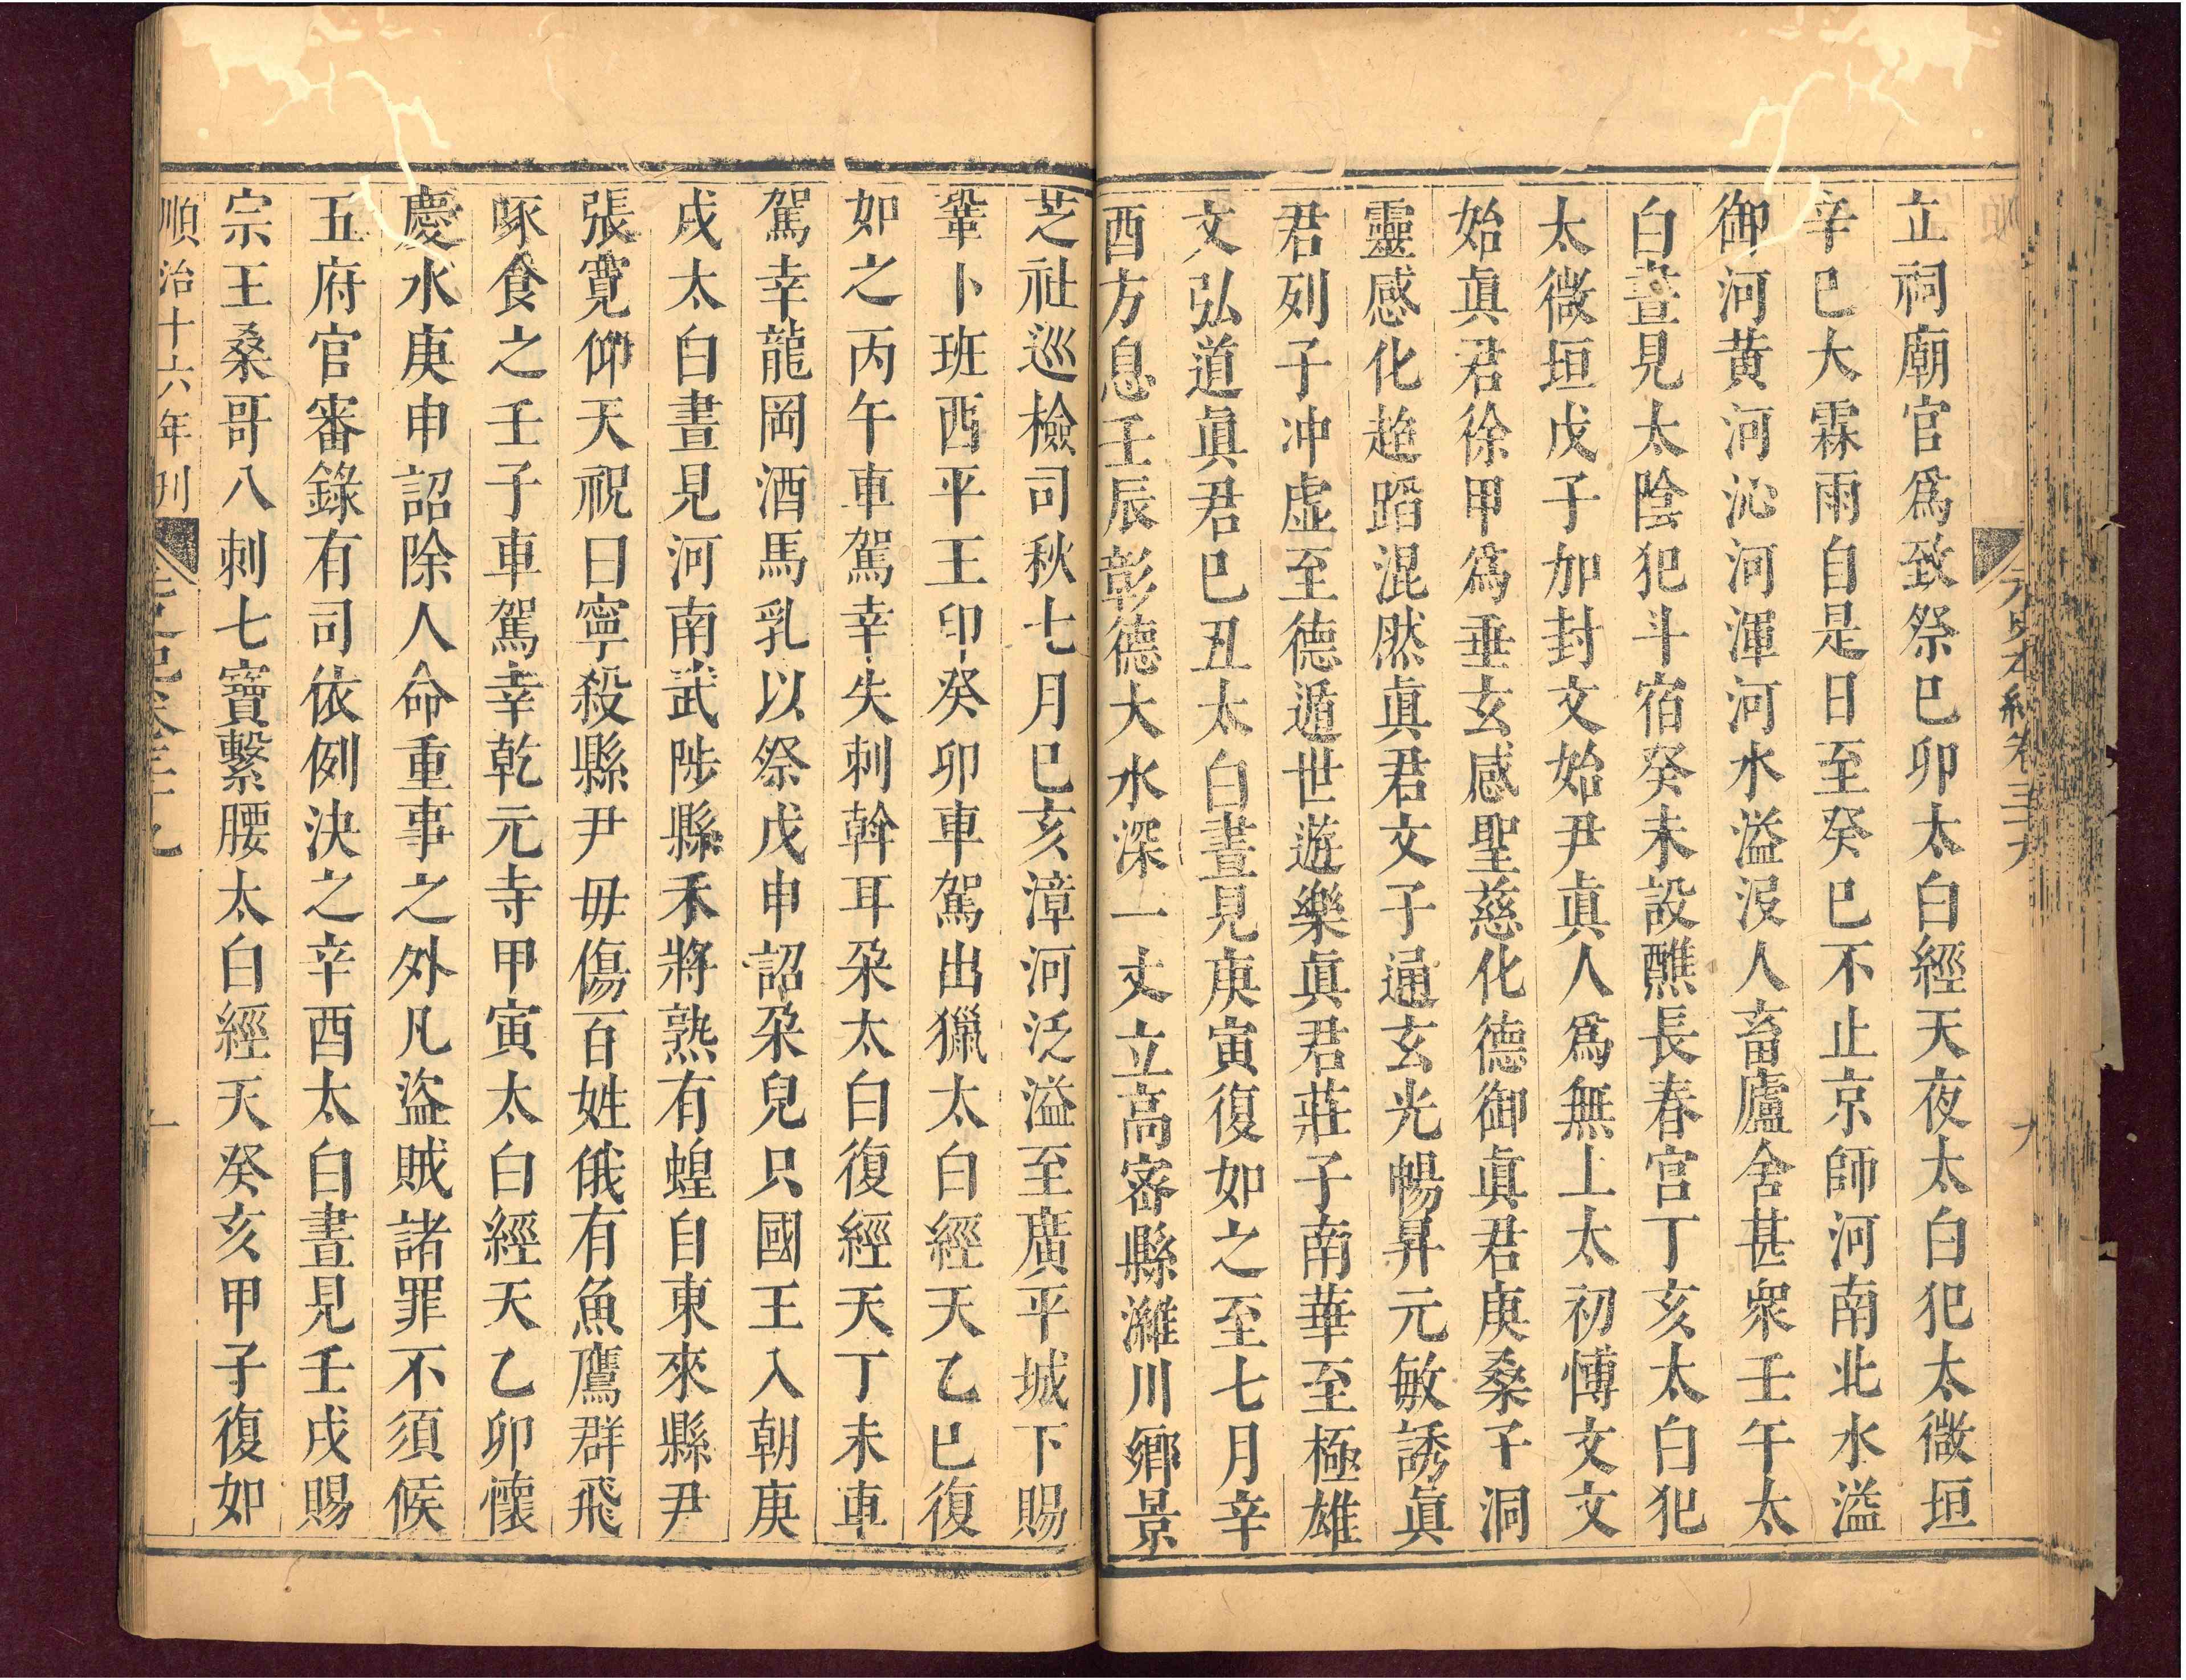 元史本紀卷三十九
九
立祠廟官爲致祭已卯太白經天夜太白犯太微垣
辛巳大霖雨自是日至癸巳不止京師河南北水溢
御河黄河沁河渾河水溢沒人畜廬舍甚衆壬午太
白晝見太陰犯斗宿癸未設醮長春宮丁亥太白犯
太微垣戊子加封文始尹眞人爲無上太初博文文
始眞君徐甲爲垂玄感聖慈化德御眞君庚桑子洞
靈感化超蹈混然眞君文子通玄光暢昇元敏誘眞
君列子冲虛至德遁世遊樂眞君莊子南華至極雄
文弘道眞君已丑太白晝見庚寅復如之至七月辛
酉方息壬辰彰德大水深一丈立高密縣濰川鄉景
芝社巡檢司秋七月已亥漳河泛溢至廣平城下賜
鞏卜班西平王印癸卯車駕出獵太白經天乙巳復
如之丙午車駕幸失刺斡耳朶太白復經天丁未車
駕幸龍岡洒馬乳以祭戊申詔朶兒只國王入朝庚
戌太白晝見河南武陟縣禾將熟有蝗自東來縣尹
張寛仰天祝曰寧殺縣尹毋傷百姓俄有魚鷹群飛
啄食之壬子車駕幸乾元寺甲寅太白經天乙卯懷
慶水庚申詔除人命重事之外凡盜賊諸罪不須候
五府官審錄有司依例決之辛酉太白晝見壬戌賜
宗王桑哥八刺七寶繫腰太白經天癸亥甲子復如
順治十六年刊